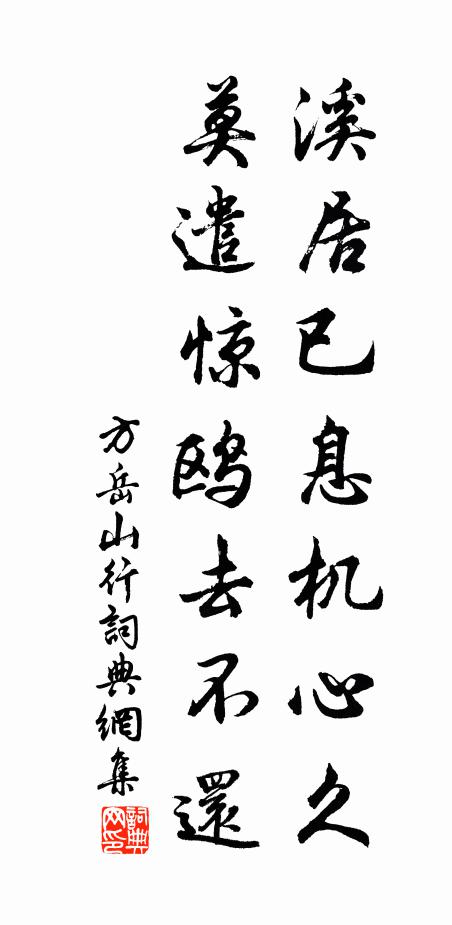 溪居已息机心久
莫遣惊鸥去不還
方岳山行詞典網集
詞典网印